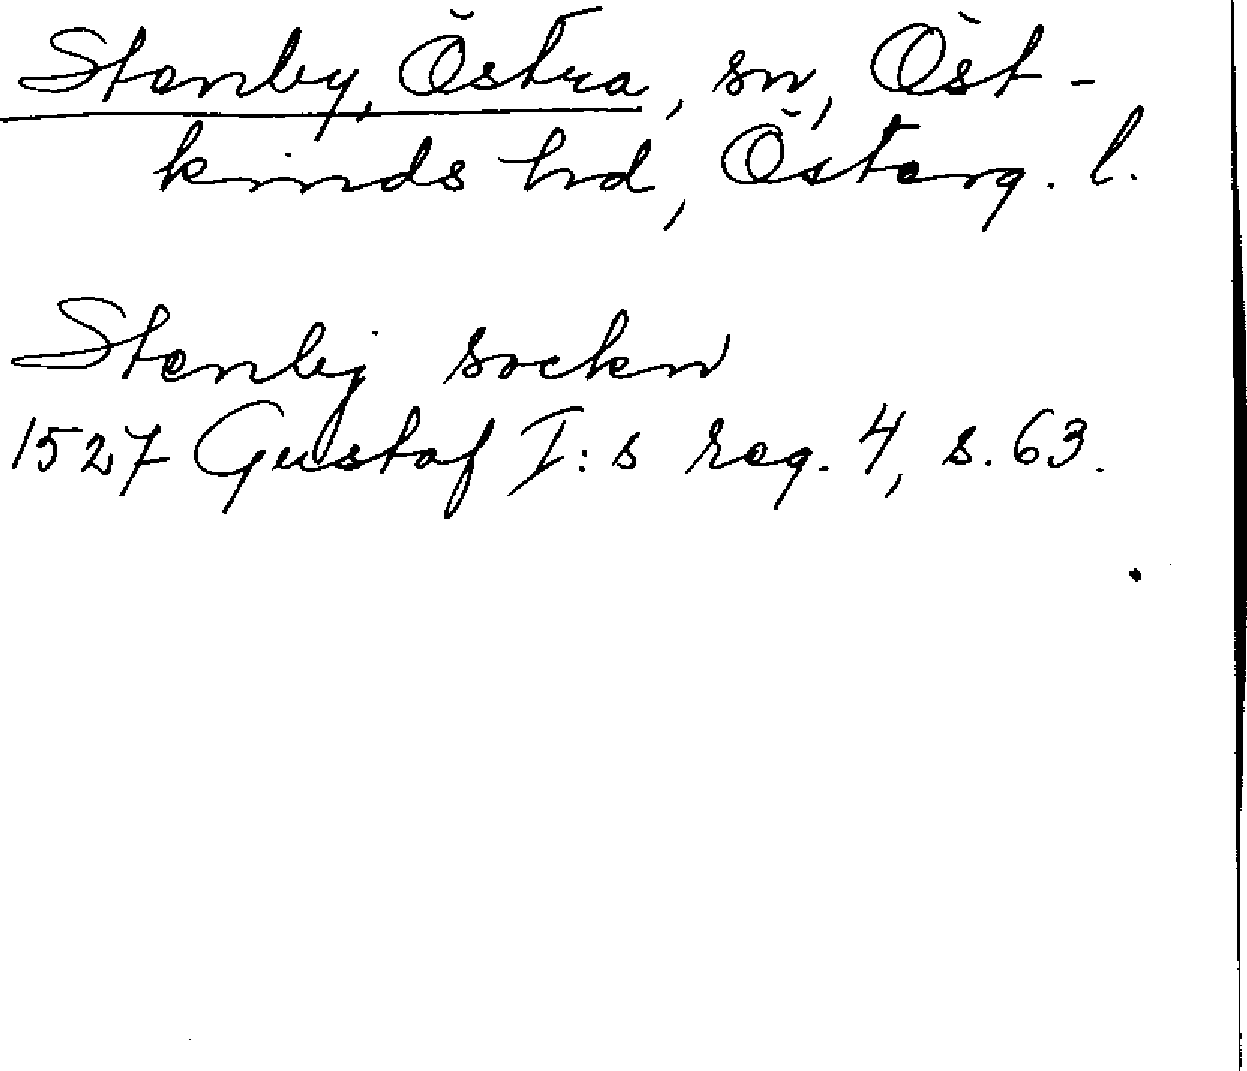 Stenby, Östra, sn, Öst-
kinds hd, Österg. l.
Stenbij sockn
1527 Gustaf I:s reg. 4, s. 63.